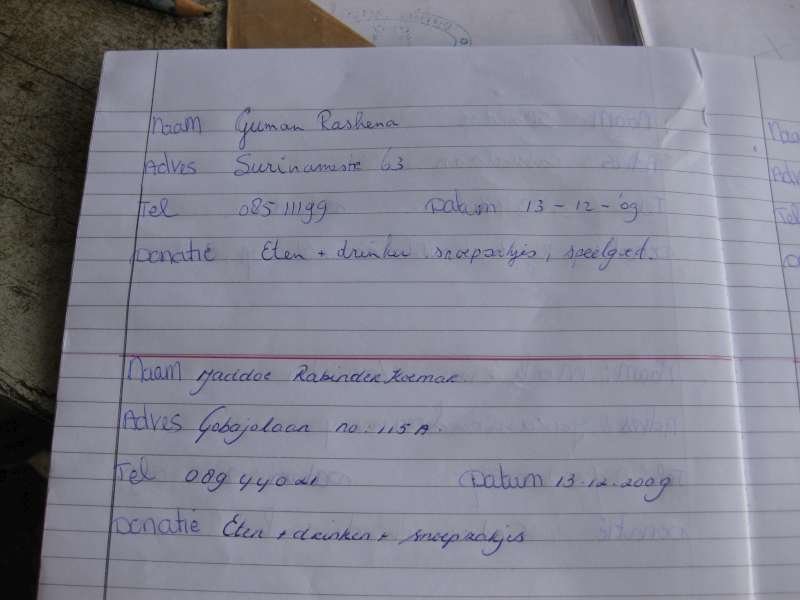 Naam Guman Rashena
Adres Surinamestr 63
Tel 08511199 Datum 13-12-'09
Donatie Eten + drinken snoepzakjes, speelgoed.
Naam Jaddoe Rabinder Koemar
Adres Gobajolaan no. 115A.
Tel 08944021 Datum 13.12.2009
Donatie Eten + drinken + snoepzakjes